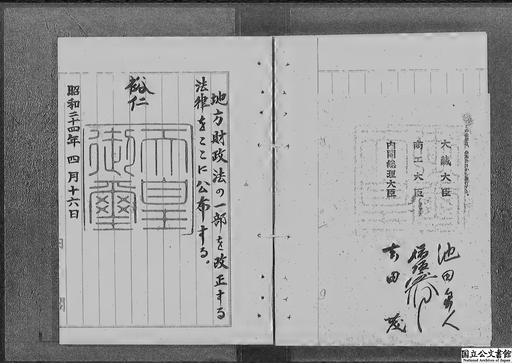 地方財政法の一部を改正する
法律をここに公布する。
裕仁
天皇
御璽
昭和二十四年四月十六日
大蔵大臣
商工大臣
内閣総理大臣
池田勇人
吉田茂
国立公文書館
National Archives of Japan